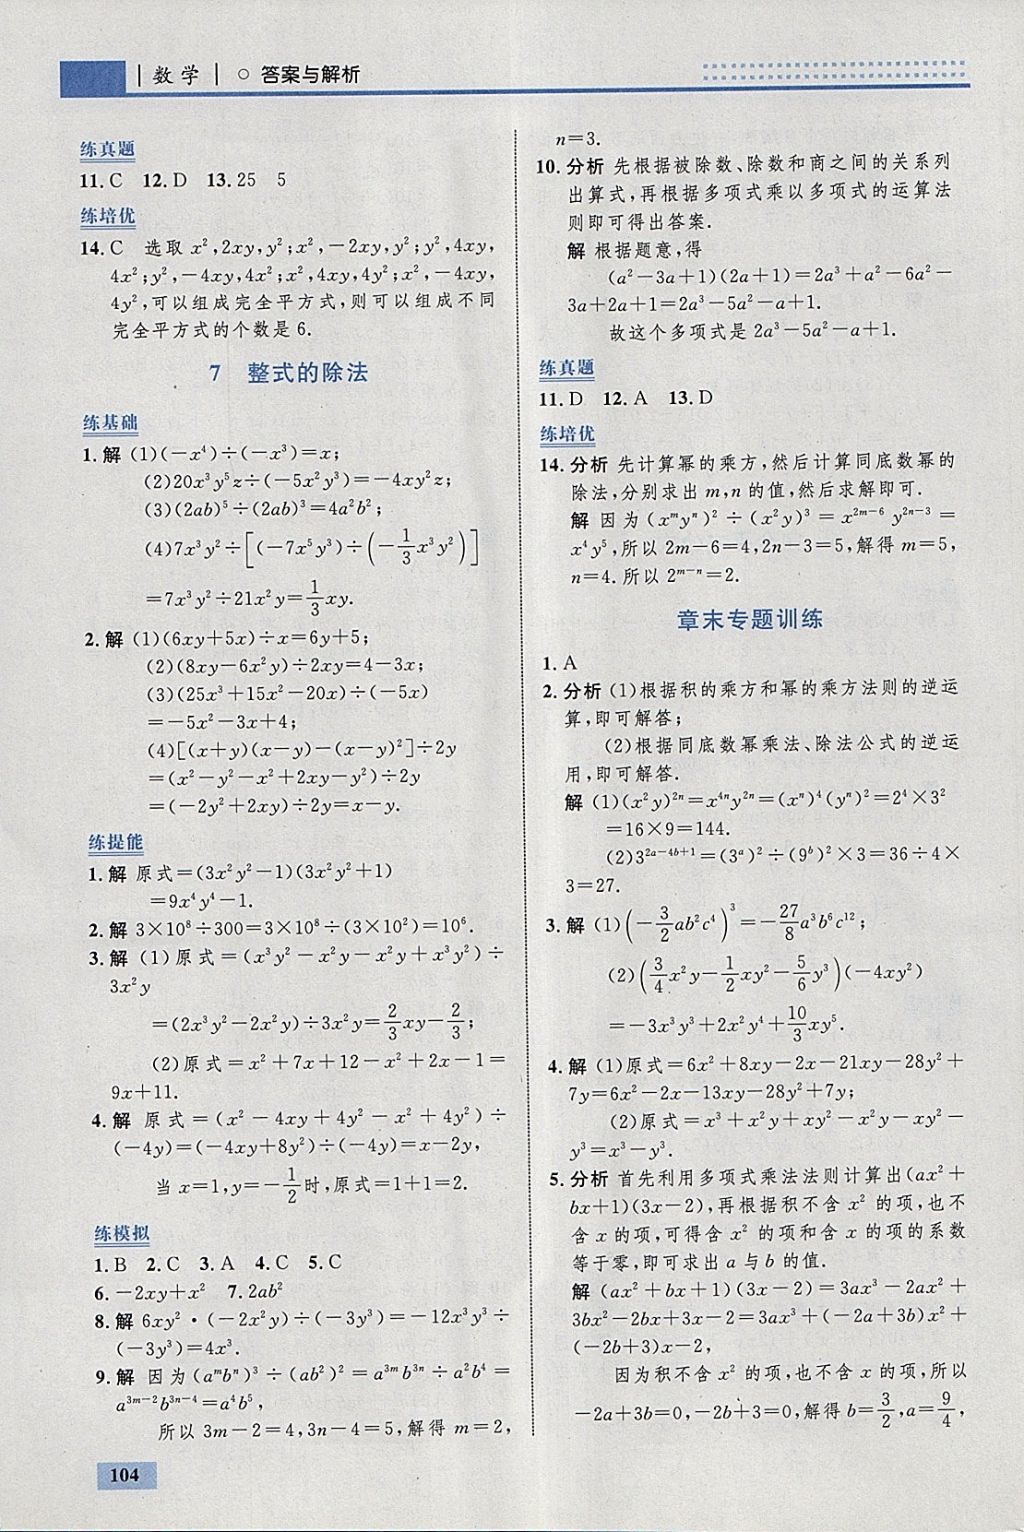 数学 ○ 答案与解析
练真题
11.C 12.D 13.25 5
练培优
14.C 选取 x²,2xy,y²;x²,−2xy,y²;y²,4xy,
4x²;y²,−4xy,4x²;x²,4xy,4y²;x²,−4xy,
4y²,可以组成完全平方式,则可以组成不同
完全平方式的个数是6.
7 整式的除法
练基础
1.解 (1)(−x⁴)÷(−x³)=x;
(2)20x³y⁵z÷(−5x²y³)=−4xy²z;
(3)(2ab)⁵÷(2ab)³=4a²b²;
(4)7x³y²÷[(−7x⁵y³)÷(−1/3x³y²)]
=7x³y²÷21x²y=1/3xy.
2.解 (1)(6xy+5x)÷x=6y+5;
(2)(8xy−6x²y)÷2xy=4−3x;
(3)(25x³+15x²−20x)÷(−5x)
=−5x²−3x+4;
(4)[(x+y)(x−y)−(x−y)²]÷2y
=(x²−y²−x²+2xy−y²)÷2y
=(−2y²+2xy)÷2y=x−y.
练提能
1.解 原式=(3x²y²−1)(3x²y²+1)
=9x⁴y⁴−1.
2.解 3×10⁸÷300=3×10⁸÷(3×10²)=10⁶.
3.解 (1)原式=(x³y²−x²y−x²y+x³y²)÷
3x²y
=(2x³y²−2x²y)÷3x²y=2/3xy−2/3;
(2)原式=x²+7x+12−x²+2x−1=
9x+11.
4.解 原式=(x²−4xy+4y²−x²+4y²)÷
(−4y)=(−4xy+8y²)÷(−4y)=x−2y,
当x=1,y=−1/2时,原式=1+1=2.
练模拟
1.B 2.C 3.A 4.C 5.C
6.−2xy+x² 7.2ab²
8.解 6xy²·(−2x²y)÷(−3y³)=−12x³y³÷
(−3y³)=4x³.
9.解 因为(aᵐbⁿ)³÷(ab²)²=a³ᵐb³ⁿ÷a²b⁴=
a³ᵐ⁻²b³ⁿ⁻⁴=a⁴b⁵,
所以3m−2=4,3n−4=5,解得m=2,
104
n=3.
10.分析 先根据被除数、除数和商之间的关系列
出算式,再根据多项式乘以多项式的运算法
则即可得出答案.
解 根据题意,得
(a²−3a+1)(2a+1)=2a³+a²−6a²−
3a+2a+1=2a³−5a²−a+1.
故这个多项式是2a³−5a²−a+1.
练真题
11.D 12.A 13.D
练培优
14.分析 先计算幂的乘方,然后计算同底数幂的
除法,分别求出m,n的值,然后求解即可.
解 因为(xᵐyⁿ)²÷(x²y)³=x²ᵐ⁻⁶y²ⁿ⁻³=
x⁴y⁵,所以2m−6=4,2n−3=5,解得m=5,
n=4.所以2ᵐ⁻ⁿ=2.
章末专题训练
1.A
2.分析 (1)根据积的乘方和幂的乘方法则的逆运
算,即可解答;
(2)根据同底数幂乘法、除法公式的逆运
用,即可解答.
解 (1)(x²y)²ⁿ=x⁴ⁿy²ⁿ=(xⁿ)⁴(yⁿ)²=2⁴×3²
=16×9=144.
(2)3²ᵃ⁻⁴ᵇ⁺¹=(3ᵃ)²÷(9ᵇ)²×3=36÷4×
3=27.
3.解 (1)(−3/2ab²c⁴)³=−27/8a³b⁶c¹²;
(2)(3/4x²y−1/2xy²−5/6y³)(−4xy²)
=−3x³y³+2x²y⁴+10/3xy⁵.
4.解 (1)原式=6x²+8xy−2x−21xy−28y²+
7y=6x²−2x−13xy−28y²+7y;
(2)原式=x³+x²y+xy²−x²y−xy²−
y³=x³−y³.
5.分析 首先利用多项式乘法法则计算出(ax²+
bx+1)(3x−2),再根据积不含x²的项,也不
含x的项,可得含x²的项和含x的项的系数
等于零,即可求出a与b的值.
解 (ax²+bx+1)(3x−2)=3ax³−2ax²+
3bx²−2bx+3x−2=3ax³+(−2a+3b)x²+
(−2b+3)x−2,
因为积不含x²的项,也不含x的项,所以
−2a+3b=0,−2b+3=0,解得b=3/2,a=9/4,